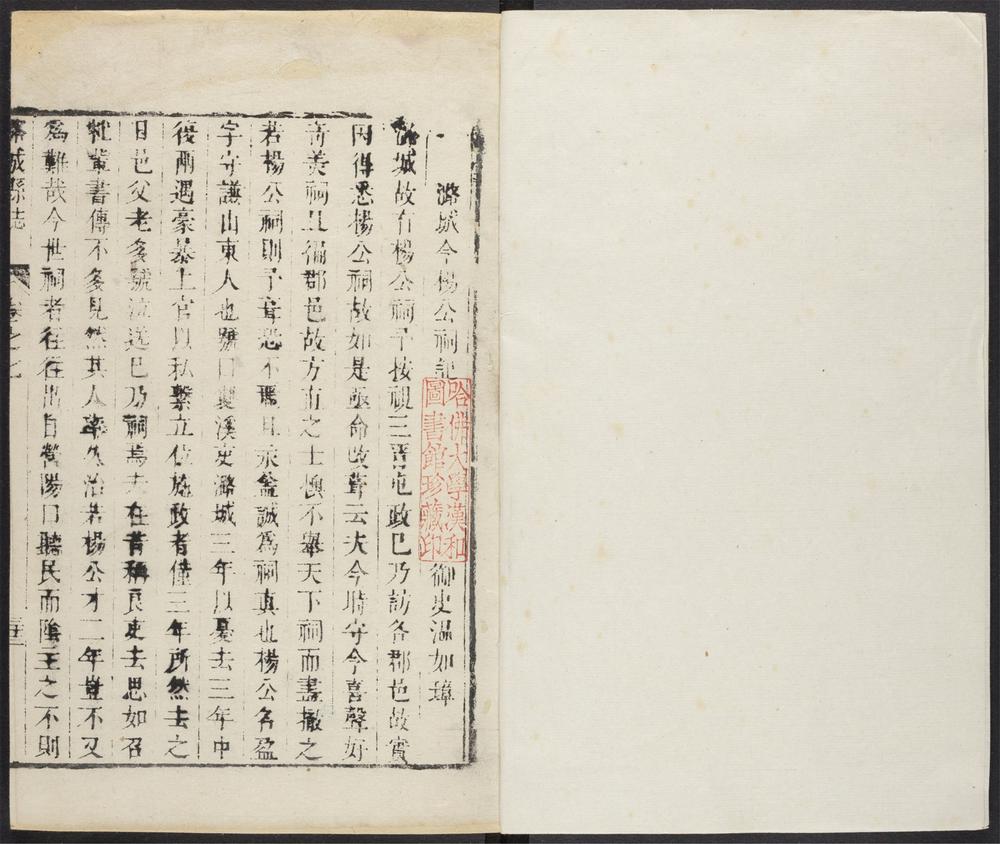 潞城令楊公祠記
御史溫如璋
城故有楊公祠予按視三晋屯政巳乃訪各郡邑故實
因得悉楊公祠故如是亟命改葺云夫今時守令喜聲好
奇美祠且徧郡邑故方直之士懊不舉天下祠而盡撤之
若楊公祠則予韋恐不瑪且亦盖誠為祠真也楊公名盈
字守謙山東人也號曰 溪吏潞城三年以憂去三年中
復兩遇豪暴上官以私繫立位施政者僅三年所然去之
日邑父老多號泣送巳乃祠焉夫在昔稱良吏去思如召
杜輩書傳不多見然其人率久治若楊公才二年豈不又
為難哉今世祠者徃徃出自 陽口聽民而陰主之不則
潞城縣志
卷之七
哈佛大學漢和
圖書館珍藏印